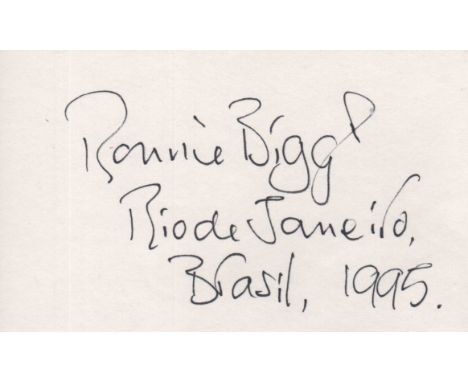 Ronnie Biggs
Rio de Janeiro,
Brasil, 1995.